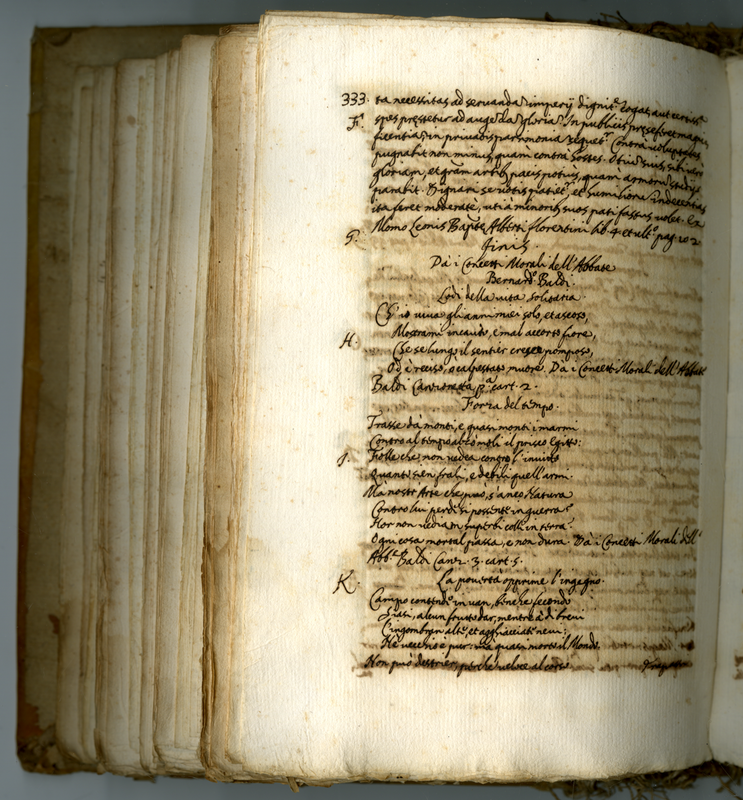 333. ta necessitas ad servanda imperij dignit.e cogat, aut certiss.a
F. spes prestetur ad augenda gloria. In publicis prese feret magni
ficentia, in privatis parsimonia sequet.r Contra voluptates
pugnabit non minus, quam contra hostes. Otiu suis, sibi vero
gloriam, et gram artib. pacis potius, quam armoru studijs
parabit. Dignari se votis patiet.r et humiliorum indecentias
ita feret moderate, uti à minorib. suos pati fastus volet. Ex
Momo Leonis Bapte Alberti florentini lib. 4. et ult.o pag. 102
G. finis.
Dà i Concetti Morali dell'Abbate
Bernard.o Baldi.
Lodi della vita solitaria.
Ch' io viva gli anni miei solo, et ascoso,
H. Mostrami incauto, e mal accorto fiore,
Che se lungo il sentier cresce pomposo,
Od è reciso, o calpestato muore. Dà i Concetti Morali dell'Abbate
Baldi Canzonata p.a cart. 2.
Forza del tempo.
Trasse dà monti, e quasi monti i marmi
Contro al tempo alzò moli il prisco Egitto:
J. Folle che non vedea contro l'invitto
Quanto sien frali, e debili quell'armi.
Ma nostr'Arte che può, s'anco Natura
Contro lui perde si possente in guerra?
Hor non vediam superbi colli in terra?
Ogni cosa mortal passa, e non dura. Dà i Concetti Morali dell'
Abb.e Baldi Canz. 3. cart. 5.
K. La povertà opprime l'ingegno.
Campo contendo in van, benche fecondo
Siasi, alcun frutto dar, mentre à di brevi
L'ingombran alte, et agghiacciate nevi:
Nè vecchio è pur: ma quasi morto il Mondo.
Non può destrier, perche veloce al corso